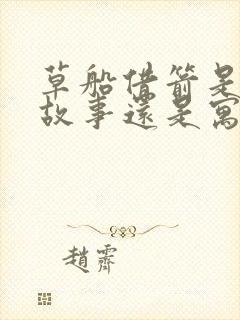 草船借箭是
故事還是寓
趙霽